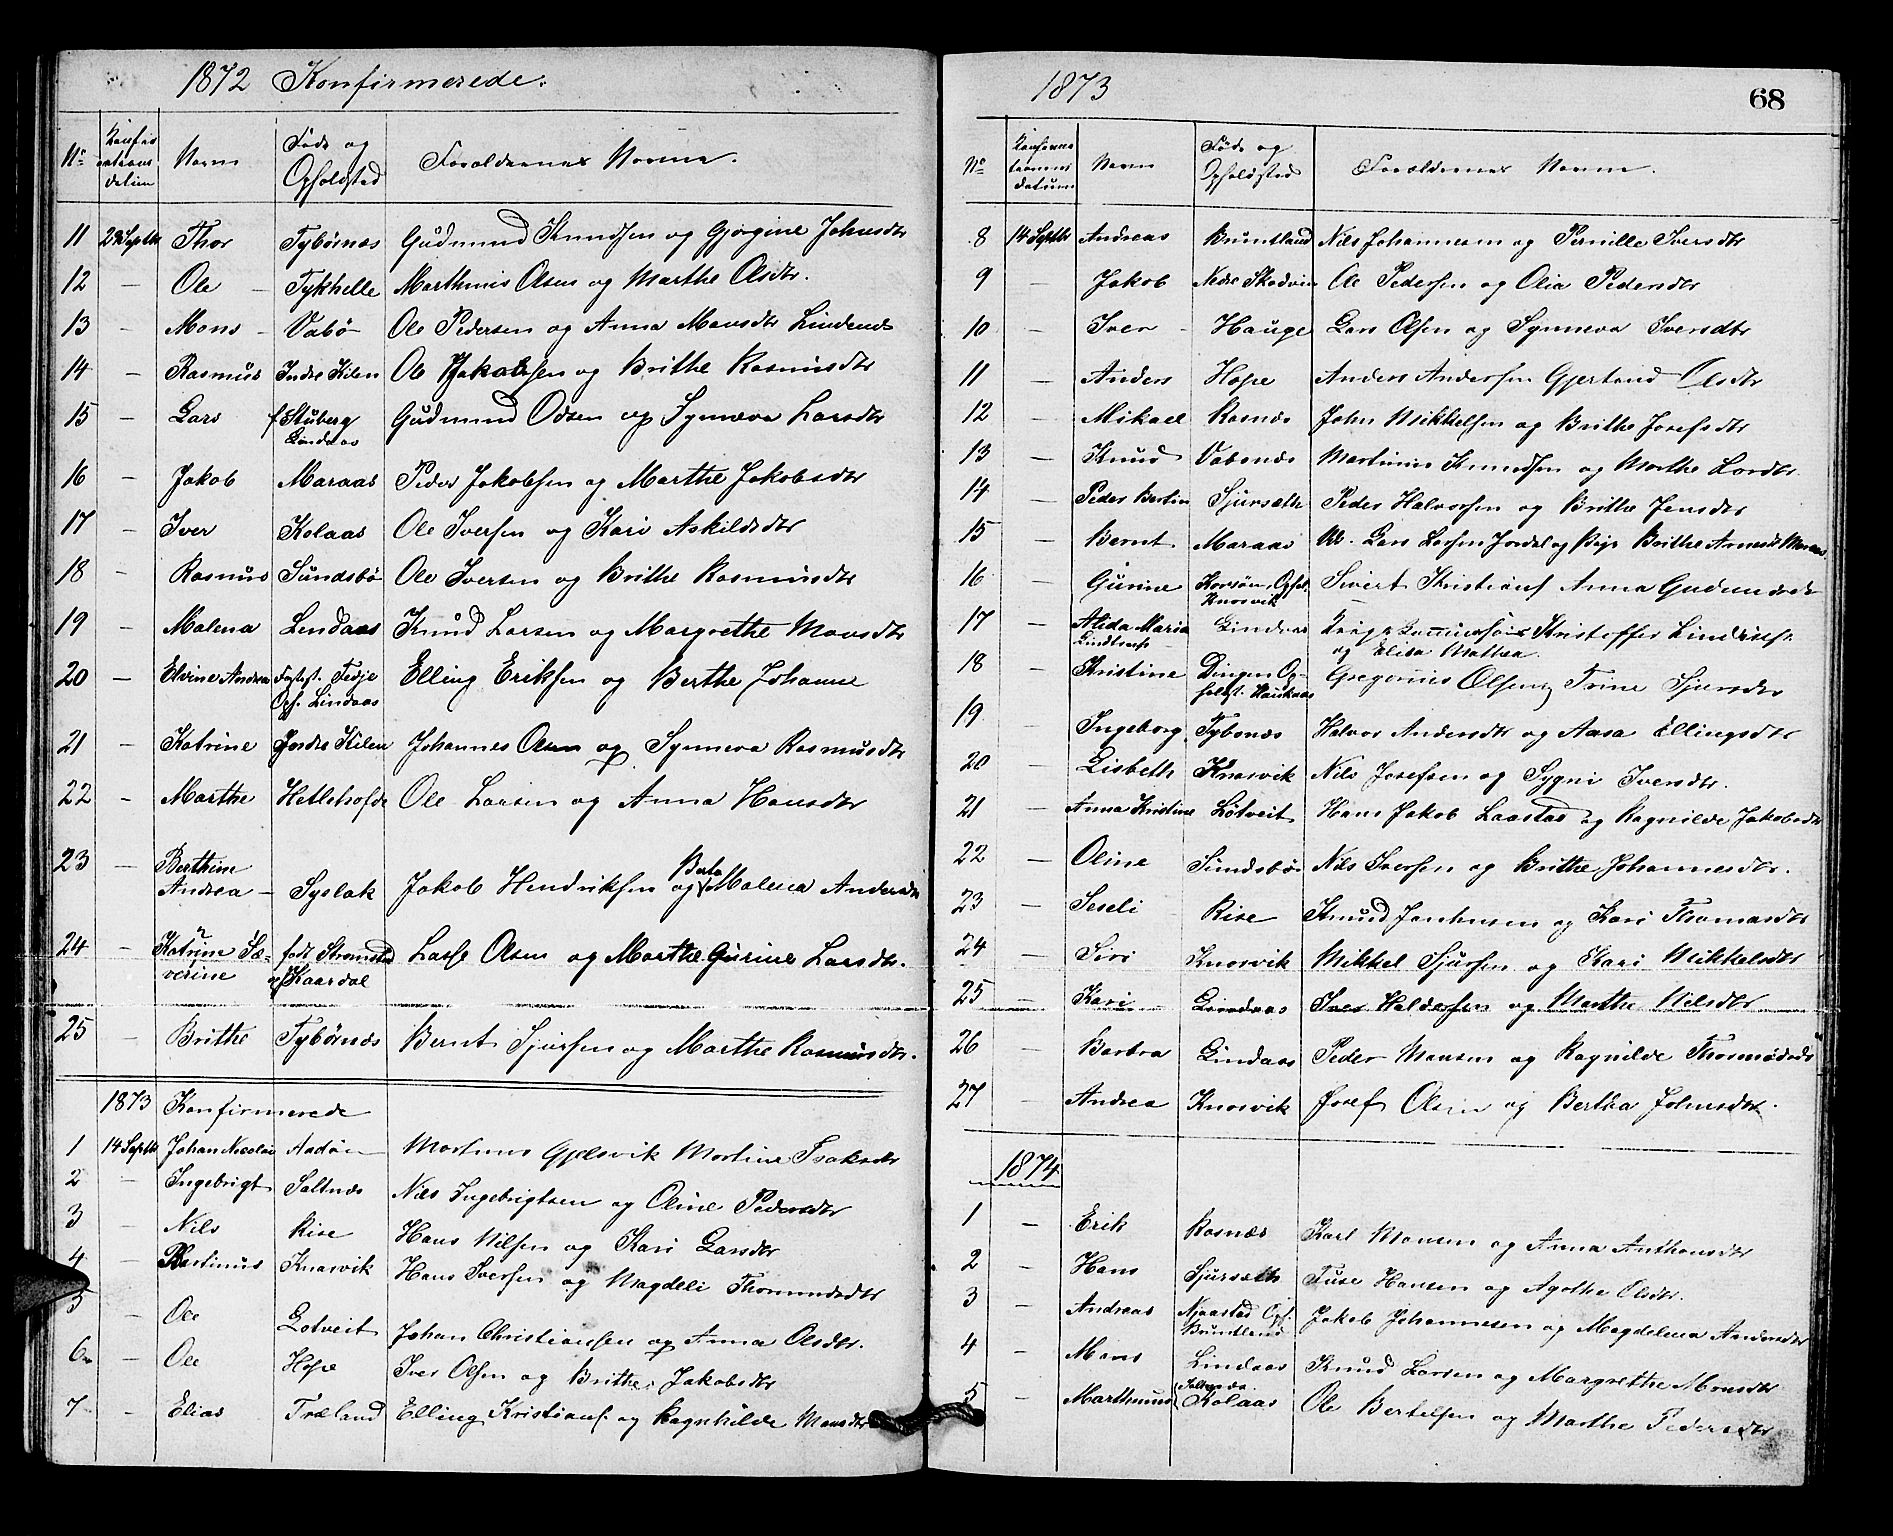 1872 Konfirmerede.
No Konfirmations datum Navn Føde og Opholdsted Forældrenes Navne.
11 Thor Tybørnæs Gudmund Knudsen og Gjørgine Johnsdtr
12 — Ole — Tykhelle Marthinus Olsen og Marthe Olsdtr.
13 — Mons — Vabø Ole Pedersen og Anna Monsdtr Lindenæs
14 — Rasmus Indre Kilen Ole Jakobsen og Brithe Rasmusdtr
15 — Lars f. Stuberg Gudmund Odsen og Synneva Larsdtr
Lindaas
16 — Jakob Maraas Peder Jakobsen og Marthe Jakobsdtr
17 — Iver Kolaas Ole Iversen og Kari Askildsdtr
18 — Rasmus Sundsbø Ole Iversen og Brithe Rasmusdtr
19 — Malena Lendaas Knud Larsen og Margrethe Monsdtr
20 — Elvine Andrea Fedje Elling Eriksen og Berthe Johanne
Oph. Lindaas
21 — Katrine Indre Kilen Johannes Olsen og Synneva Rasmusdtr
22 — Marthe Ole Larsen og Anna Hansdtr
23 — Berthine
Andrea — Syslak Jakob Hendriksen og Berta Malena Andersdtr
24 — Katrine Sæ- født Lasse Olsen og Marthe Gurine Larsdtr.
verine Kaardal
25 — Brithe Tybørnæs Bernt Sjursen og Marthe Rasmusdtr.
1873 Konfirmerede
1 14 Septbr Johan Nicolai Martinus Gjelsvik Martine Isaksdtr
2 — Ingebrigt Saltnæs Nils Ingebrigtsen og Oline Pedersdtr
3 — Nils Rise Hans Nilsen og Kari Larsdtr
4 — Bertinus Knarvik Hans Iversen og Magdeli
5 — Ole Lotveit Johan Christiansen og Anna Olsdtr.
6 — Ole Hope Iver Olsen og Brithe Jakobsdtr
7 — Elias Træland Elling Kristians. og Ragnhilde Monsdtr
1873
68
No Konfirmationens datum Navn Føde og Opholdsted Forældrenes Navne.
8 14 Septbr Andreas Bruntland Nils Johannesen og Pernille Iversdtr
9 — Jakob Nedre Skodvin Ole Pedersen og Olia Pedersdtr
10 — Iver — Hauge Lars Olsen og Synneva Iversdtr
11 — Anders Hope Anders Andersen Gjertrud Olsdtr
12 — Mikael Rosnæs John Mikkelsen og Brithe Josefsdtr
13 — Knud Vabenæs Martinus Knudsen og Marthe Larsdtr
14 — Peder Bertin Sjursæth Peder Halvorsen og Brithe Jensdtr
15 — Bernt Maraas Lars Larsen Jordal og Pige Brithe Arnesdtr Maraas
16 — Gurine Oph. Sivert Kristians. Anna Gudmundsdtr
Knarvik
17 — Alida Maria Lindaas Kristoffer
og Elisa Mathea
18 — Kristine Dingen Op- Gregorius Olsen og Trine Sjursdtr
19 — Ingeborg Tybønæs Halvor Andersdtr og Aasa Ellingsdtr
20 — Lisbeth Knarvik Nils Josefsen og Sygni Iversdtr.
21 — Anna Kristine Løtveit Hans Jakob Laastad og Ragnilde Jakobsdtr
22 — Oline Sundsbø Nils Iversen og Brithe Johannesdtr.
23 — Seseli Rise Knud Jonhnsen og Kari Thomasdtr
24 — Siri Knarvik Mikkel Sjursen og Kari Mikkelsdtr
25 — Kari Lindaas Iver Haldorsen og Marthe Nilsdtr
26 — Barbra Lindaas Peder Monsen og Ragnilde
27 — Andrea Knarvik Josef Olsen og Bertha Johnsdtr.
1874
1 — Erik Rosnæs Karl Monsen og Anna Anthonsdtr
2 — Hans Sjursæth Tuse Hansen og Agathe Olsdtr.
3 — Andreas Njaastad Oph. Jakob Johannesen og Magdelena Andersdtr
Bruntland
4 — Mons Lindaas Knud Larsen og Margrethe Monsdtr
5 — Marthinus Kolaas Ole Bertelsen og Marthe Pedersdtr